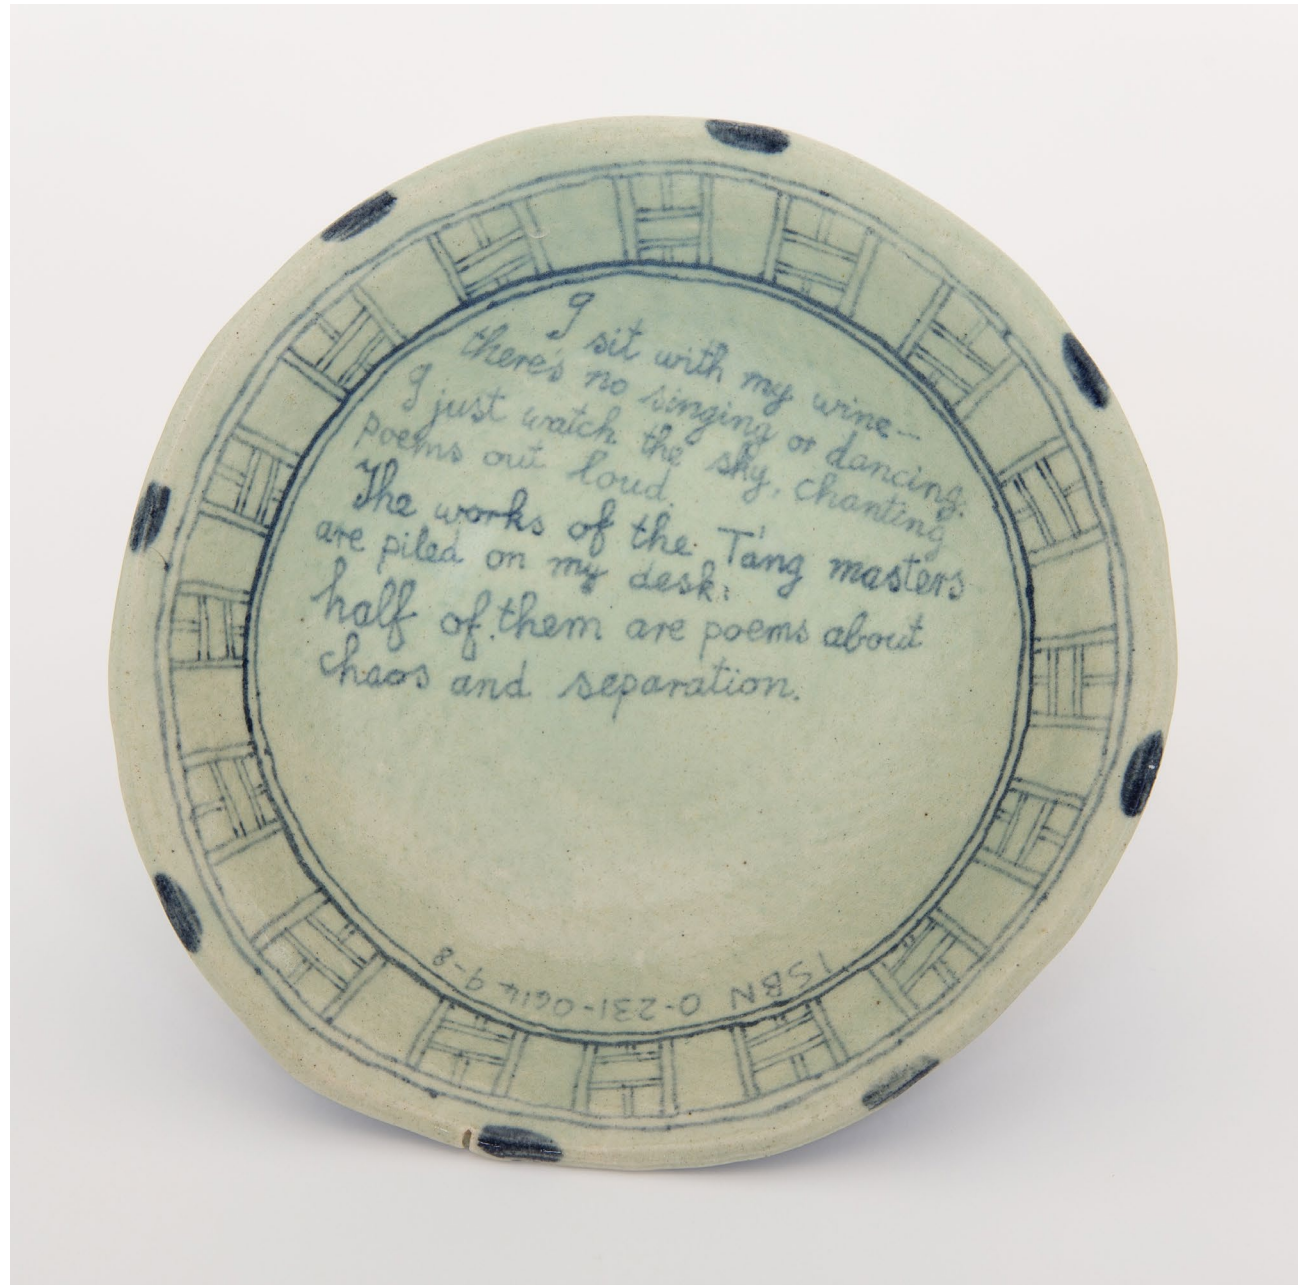 I sit with my wine--
there's no singing or dancing;
I just watch the sky, chanting
poems out loud.
The works of the T'ang masters
are piled on my desk:
half of them are poems about
chaos and separation.
ISBN 0-231-06149-8